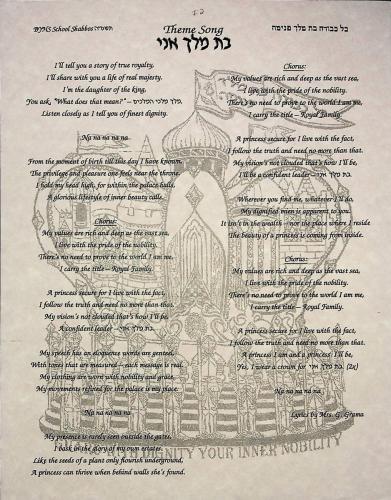 BYHS School Shabbos
Theme Song
כל כבודה בת מלך פנימה
בת מלך אני
I'll tell you a story of true royalty,
I'll share with you a life of real majesty.
I'm the daughter of the king,
You ask, "What does that mean?" – מלך מלכי המלכים,
Listen closely as I tell you of finest dignity.
Na na na na na
From the moment of birth till this day I have known,
The privilege and pleasure one feels near the throne.
I hold my head high, for within the palace halls,
A glorious lifestyle of inner beauty calls.
Chorus:
My values are rich and deep as the vast sea,
I live with the pride of the nobility.
There's no need to prove to the world I am me,
I carry the title – Royal Family.
A princess secure for I live with the fact,
I follow the truth and need no more than that.
My vision's not clouded that's how I'll be,
A confident leader – בת מלך אני.
My speech has an eloquence words are genteel,
With tones that are measured – each message is real.
My clothing are worn with nobility and grace,
My movements refined for the palace is my place.
Na na na na na
My presence is rarely seen outside the gates,
I bask in the glory of my own estates.
Like the seeds of a plant only flourish underground,
A princess can thrive when behind walls she's found.
Chorus:
My values are rich and deep as the vast sea,
I live with the pride of the nobility.
There's no need to prove to the world I am me,
I carry the title – Royal Family.
A princess secure for I live with the fact,
I follow the truth and need no more than that.
My vision's not clouded that's how I'll be,
I'll be a confident leader – בת מלך אני.
Wherever you find me, whatever I'll do,
My dignified mien is apparent to you.
It isn't in the wealth – nor the place where I reside
The beauty of a princess is coming from inside.
Chorus:
My values are rich and deep as the vast sea,
I live with the pride of the nobility.
There's no need to prove to the world I am me,
I carry the title – Royal Family.
A princess secure for I live with the fact,
I follow the truth and need no more than that.
A princess I am and a princess I'll be,
Yes, I wear a crown for בת מלך אני. (2x)
Na na na na na
Lyrics by Mrs. G.
DIGNITY YOUR INNER NOBILITY